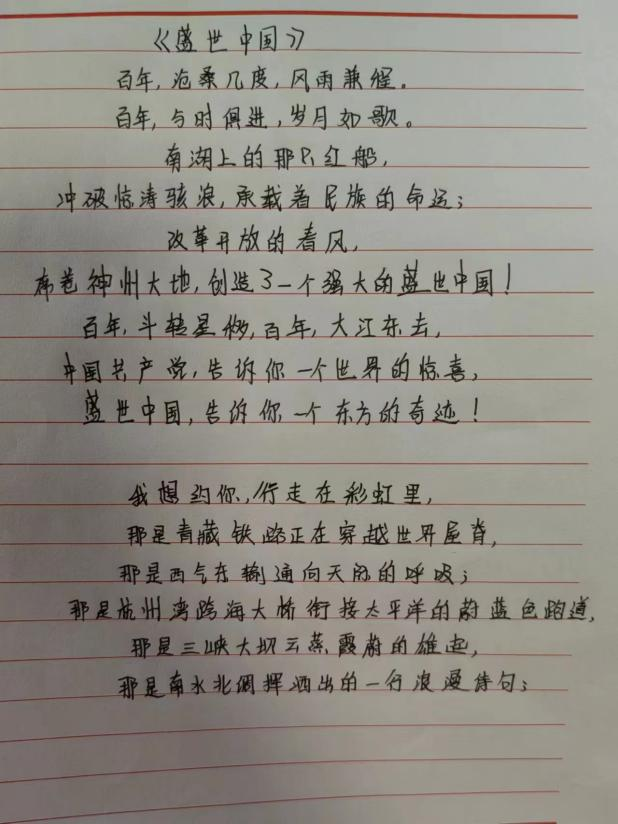 《盛世中国》
百年,沧桑几度,风雨兼程。
百年,与时俱进,岁月如歌。
南湖上的那只红船,
冲破惊涛骇浪,承载着民族的命运;
改革开放的春风,
席卷神州大地,创造了一个强大的盛世中国!
百年,斗转星移,百年,大江东去,
中国共产党,告诉你一个世界的惊喜,
盛世中国,告诉你一个东方的奇迹!
我想约你,行走在彩虹里,
那是青藏铁路正在穿越世界屋脊,
那是西气东输通向天际的呼吸;
那是杭州湾跨海大桥衔接太平洋的蔚蓝色跑道,
那是三峡大坝云蒸霞蔚的雄起,
那是南水北调挥洒出的一行浪漫诗句;